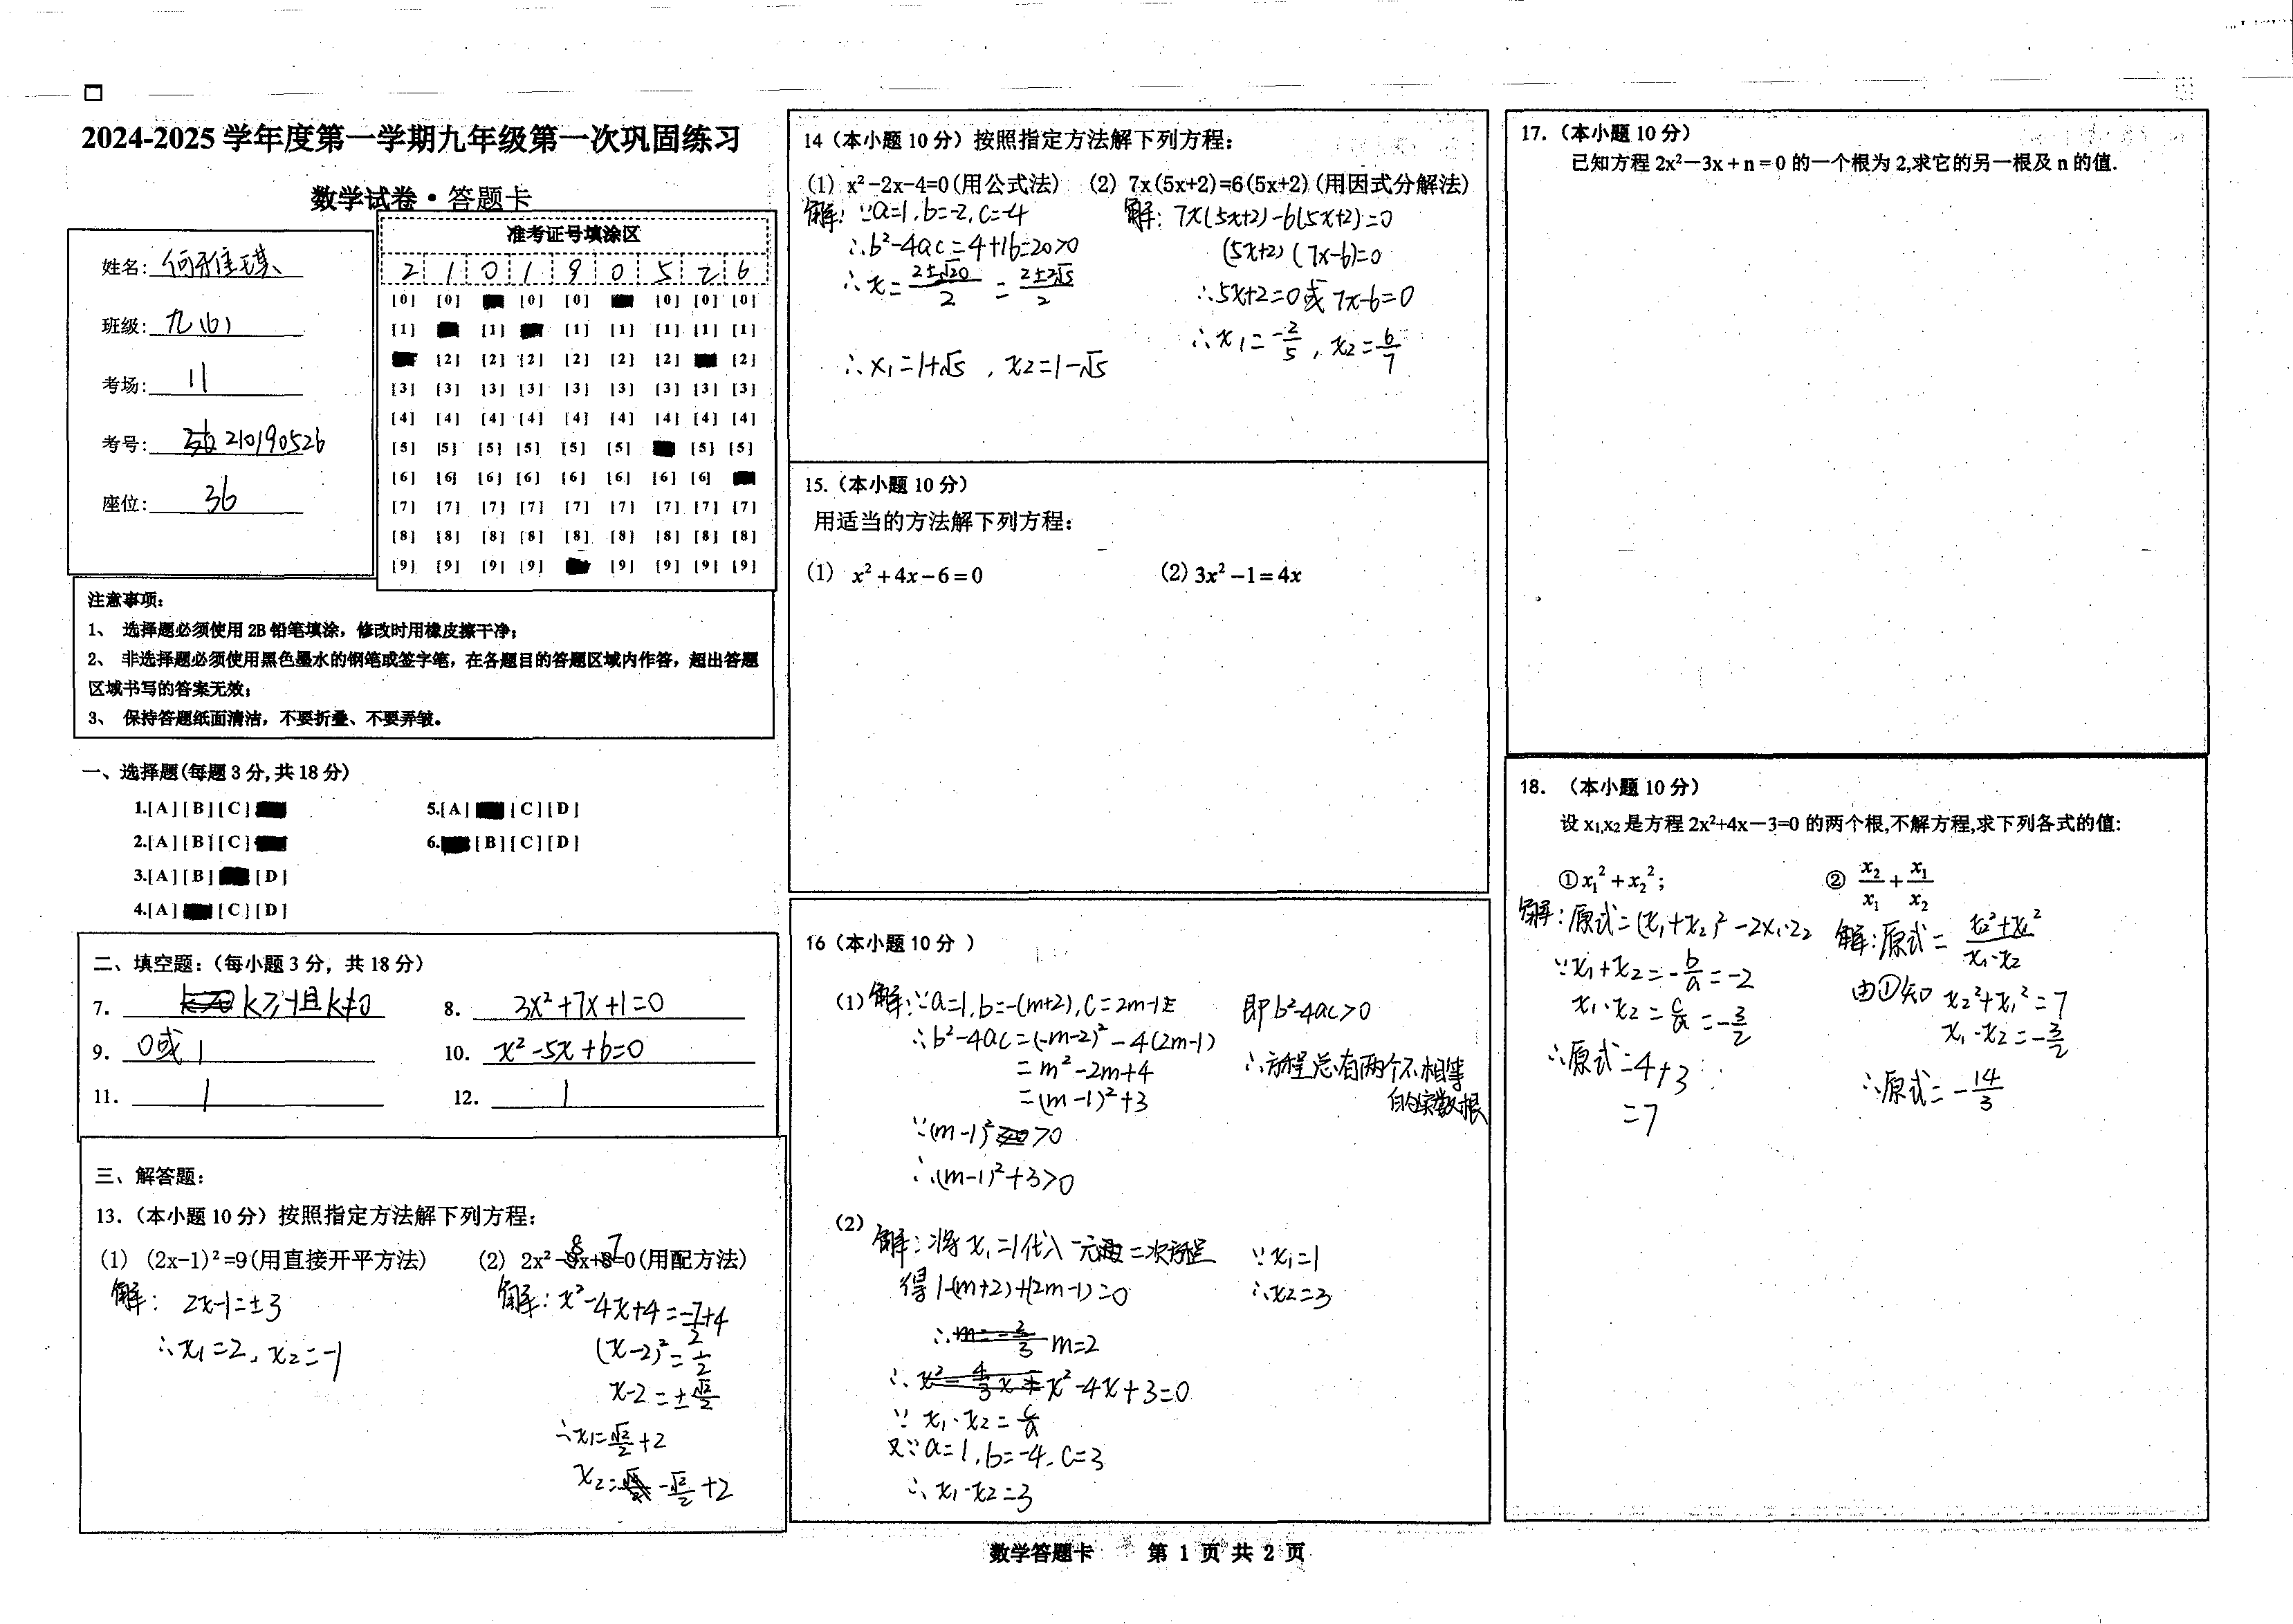 2024-2025 学年度第一学期九年级第一次巩固练习
数学试卷・答题卡
姓名：何雅琪
班级：九(6)
考场：11
考号：210190526
座位：36
准考证号填涂区
2 1 0 1 9 0 5 2 6
[0] [0] [0] [0] [0] [0] [0]
[1] [1] [1] [1] [1] [1] [1]
[2] [2] [2] [2] [2] [2] [2]
[3] [3] [3] [3] [3] [3] [3] [3] [3]
[4] [4] [4] [4] [4] [4] [4] [4] [4]
[5] [5] [5] [5] [5] [5] [5] [5]
[6] [6] [6] [6] [6] [6] [6] [6]
[7] [7] [7] [7] [7] [7] [7] [7] [7]
[8] [8] [8] [8] [8] [8] [8] [8] [8]
[9] [9] [9] [9] [9] [9] [9] [9]
注意事项：
1、 选择题必须使用 2B 铅笔填涂，修改时用橡皮擦干净；
2、 非选择题必须使用黑色墨水的钢笔或签字笔，在各题目的答题区域内作答，超出答题
区域书写的答案无效；
3、 保持答题纸面清洁，不要折叠、不要弄皱。
一、选择题(每题 3 分,共 18 分)
1.[A][B][C]
2.[A][B][C]
3.[A][B] [D]
4.[A] [C][D]
5.[A] [C][D]
6. [B][C][D]
二、填空题：（每小题 3 分，共 18 分）
7. k≥-1且k≠0 8. 3x²+7x+1=0
9. 0或1 10. x²-5x+6=0
11. 1 12. 1
三、解答题：
13.（本小题 10 分）按照指定方法解下列方程：
(1) (2x-1)²=9(用直接开平方法)
解： 2x-1=±3
∴x₁=2，x₂=-1
(2) 2x²-8x+7=0(用配方法)
解：x²-4x+4=-7/2+4
(x-2)²=1/2
x-2=±√2/2
∴x₁=√2/2+2
x₂=-√2/2+2
14（本小题 10 分）按照指定方法解下列方程：
(1) x²-2x-4=0(用公式法)
解：∵a=1，b=-2，c=-4
∴b²-4ac=4+16=20>0
∴x=(2±√20)/2=(2±2√5)/2
∴x₁=1+√5，x₂=1-√5
(2) 7x(5x+2)=6(5x+2)(用因式分解法)
解：7x(5x+2)-6(5x+2)=0
(5x+2)(7x-6)=0
∴5x+2=0或7x-6=0
∴x₁=-2/5，x₂=6/7
15.（本小题 10 分）
用适当的方法解下列方程：
(1) x²+4x-6=0 (2) 3x²-1=4x
16（本小题 10 分 ）
(1) 解：∵a=1，b=-(m+2)，c=2m-1
∴b²-4ac=(-m-2)²-4(2m-1)
=m²-2m+4
=(m-1)²+3
∵(m-1)²>0
∴(m-1)²+3>0
即b²-4ac>0
∴方程总有两个不相等
的实数根
(2) 解：将x₁=1代入一元二次方程
得1-(m+2)+(2m-1)=0
∴m=2
∴x²-4x+3=0
∵x₁·x₂=c/a
又∵a=1，b=-4，c=3
∴x₁·x₂=3
∵x₁=1
∴x₂=3
17.（本小题 10 分）
已知方程 2x²－3x + n = 0 的一个根为 2,求它的另一根及 n 的值.
18. （本小题 10 分）
设 x₁,x₂ 是方程 2x²+4x－3=0 的两个根,不解方程,求下列各式的值:
①x₁²+x₂²；
解：原式=(x₁+x₂)²-2x₁·x₂
∵x₁+x₂=-b/a=-2
x₁·x₂=c/a=-3/2
∴原式=4+3
=7
② x₂/x₁+x₁/x₂
解：原式=(x₂²+x₁²)/(x₁·x₂)
由①知 x₂²+x₁²=7
x₁·x₂=-3/2
∴原式=-14/3
数学答题卡 第 1 页 共 2 页